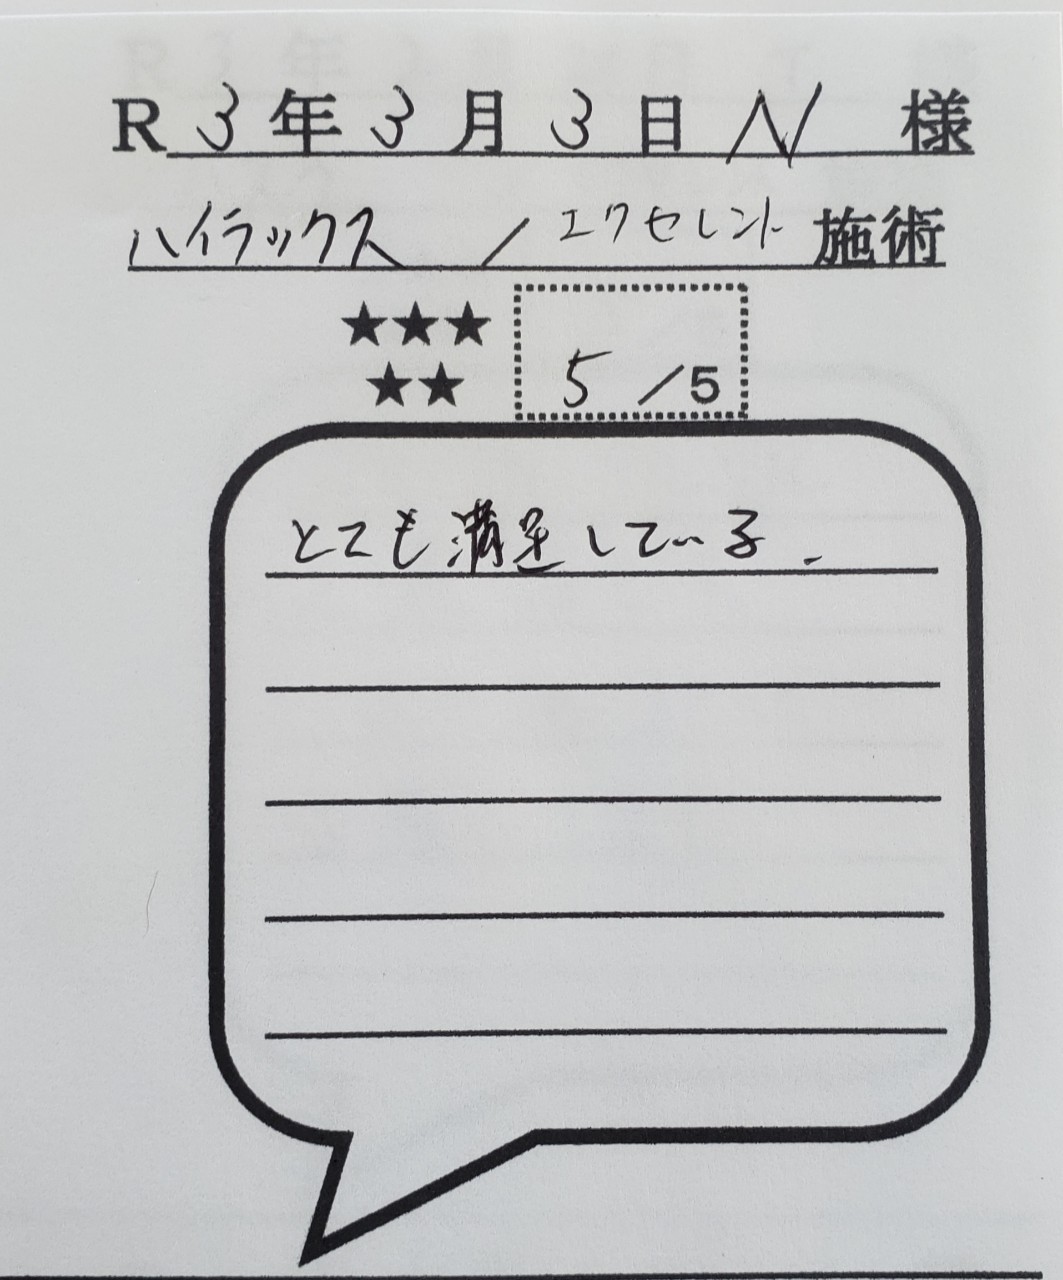 R 3 年 3 月 3 日 N 様
ハイラックス / エクセレント 施術
★★★
★★
5 /5
とても満足している.